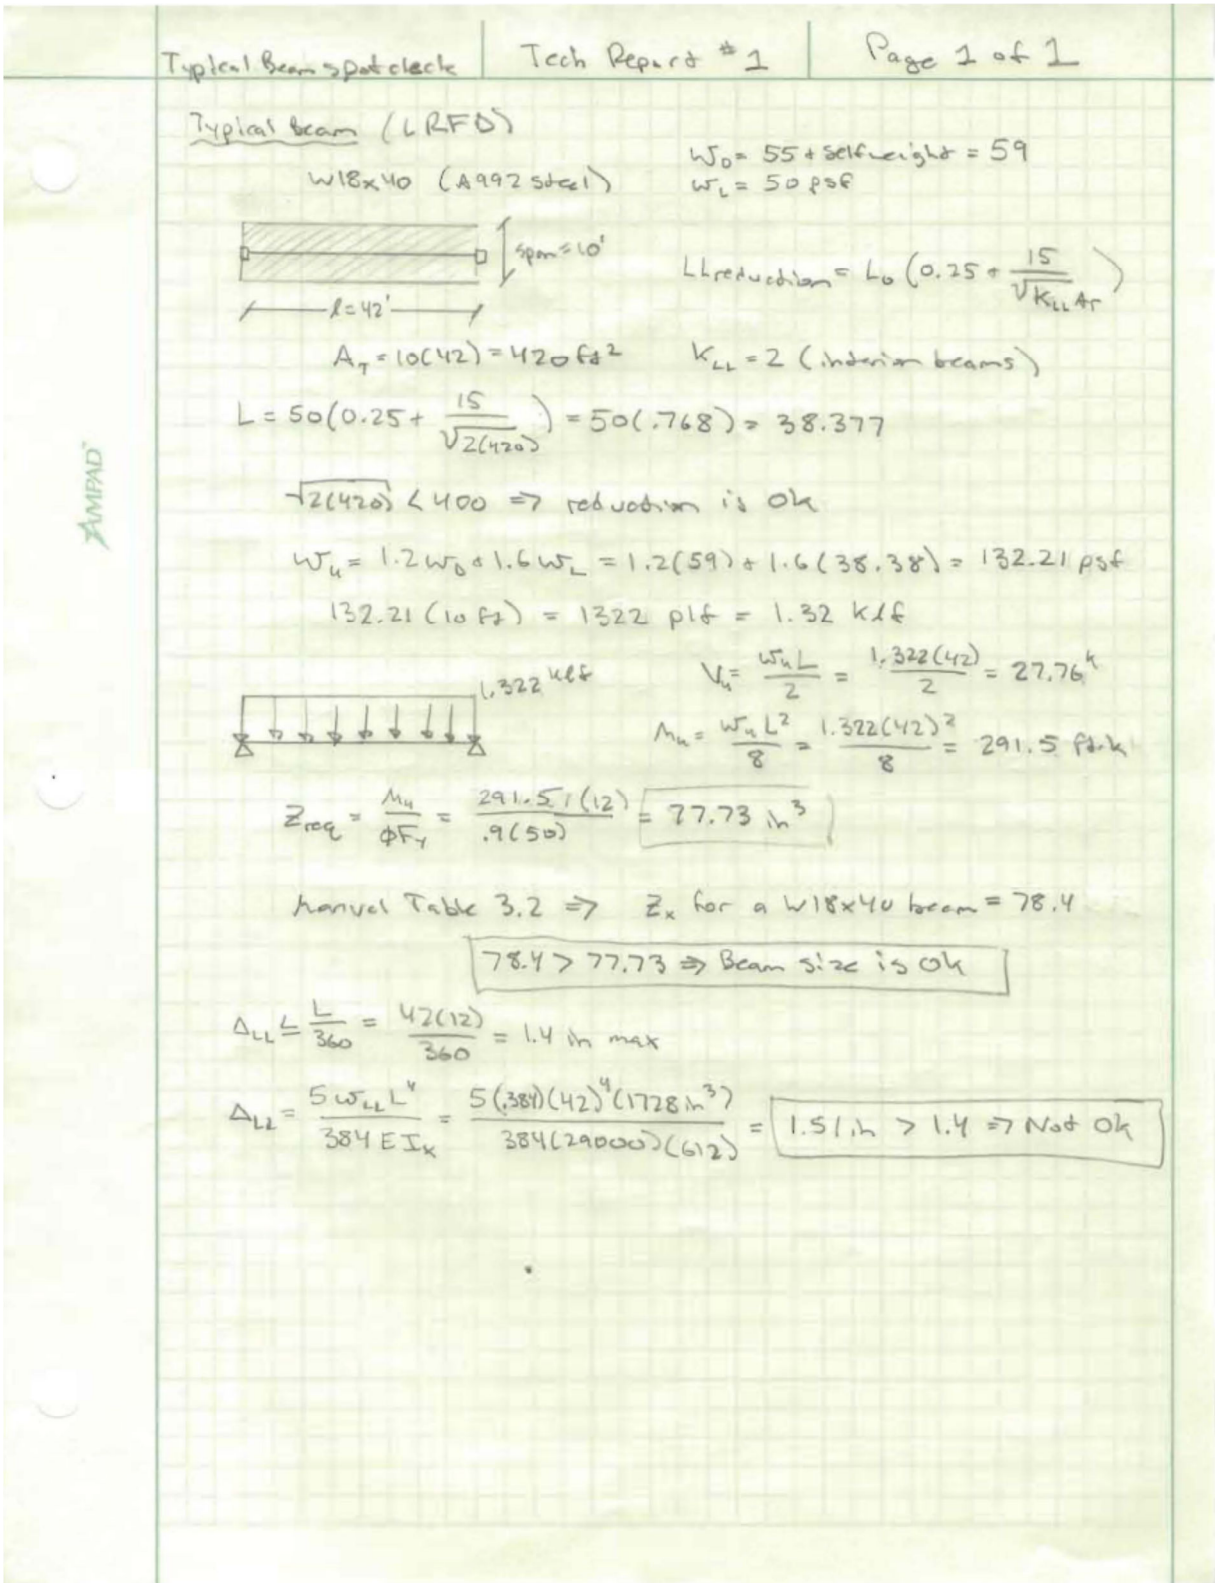 Typical Beam spot check
Tech Report #1
Page 1 of 1
Typical beam (LRFD)
W18x40 (A992 steel)
W_D = 55 + selfweight = 59
w_L = 50 psf
span = 10'
l = 42'
LL reduction = L_o (0.25 + 15/√(K_LL A_T))
A_T = 10(42) = 420 ft²
K_LL = 2 (interior beams)
L = 50(0.25 + 15/√(2(420))) = 50(.768) = 38.377
√(2(420)) < 400 => reduction is ok
W_u = 1.2 w_D + 1.6 w_L = 1.2(59) + 1.6(38.38) = 132.21 psf
132.21 (10 ft) = 1322 plf = 1.32 klf
1.322 klf
V_u = w_u L/2 = 1.322(42)/2 = 27.76 k
M_u = w_u L²/8 = 1.322(42)²/8 = 291.5 ft·k
Z_req = M_u/φF_y = 291.51(12)/.9(50) = 77.73 in³
Manual Table 3.2 => Z_x for a W18x40 beam = 78.4
78.4 > 77.73 => Beam size is ok
Δ_LL ≤ L/360 = 42(12)/360 = 1.4 in max
Δ_LL = 5 w_LL L⁴/384 E I_x = 5(.384)(42)⁴(1728 in³)/384(29000)(612) = 1.51 in > 1.4 => Not ok
AMPAD™